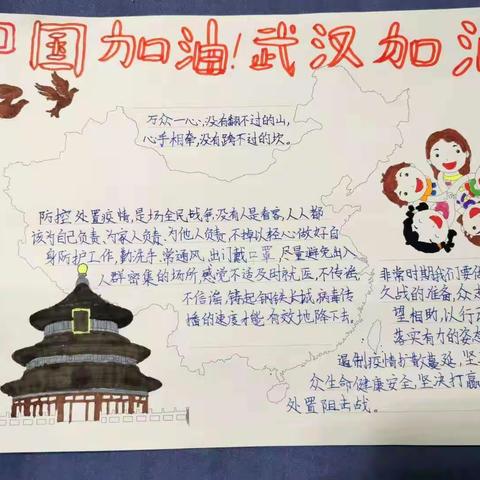 中国加油！武汉加油
万众一心，没有翻不过的山，
心手相牵，没有跨不过的坎。
防控处置疫情，是场全民战争，没有人是看客，人人都
该为自己负责、为家人负责、为他人负责，不掉以轻心做好自
身防护工作，勤洗手、常通风，出门戴口罩，尽量避免出入
人群密集的场所，感觉不适及时就医，不传谣
不信谣，铸起钢铁长城，病毒传
播的速度才能有效地降下去。
非常时期我们要做
久战的准备，众志
望相助，以行动
落实有力的姿态
遏制疫情扩散蔓延，坚
众生命健康安全，坚决打赢
处置阻击战。